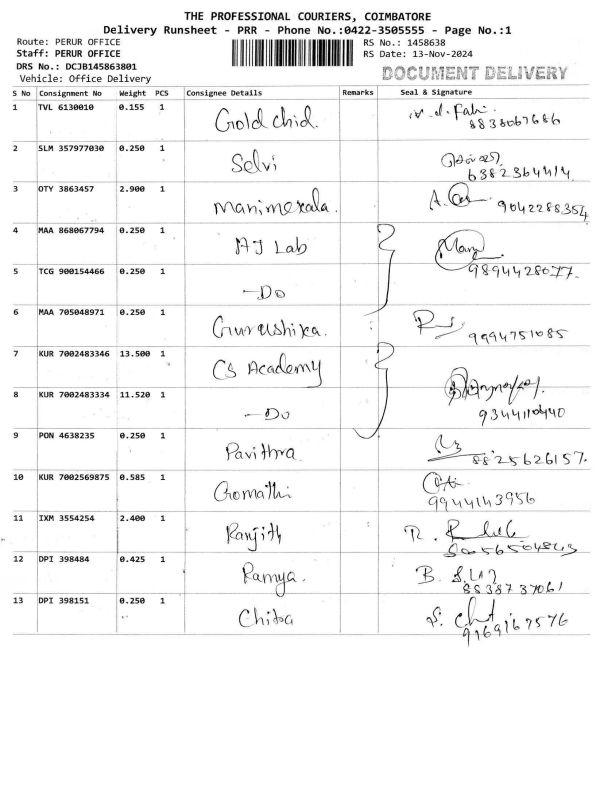 THE PROFESSIONAL COURIERS, COIMBATORE
Delivery Runsheet - PRR - Phone No.:0422-3505555 - Page No.:1
Route: PERUR OFFICE RS No.: 1458638
Staff: PERUR OFFICE RS Date: 13-Nov-2024
DRS No.: DCJB145863801
Vehicle: Office Delivery DOCUMENT DELIVERY
S No Consignment No Weight PCS Consignee Details Remarks Seal & Signature
1 TVL 6130010 0.155 1 Gold chid.
8838067686
2 SLM 357977030 0.250 1 Selvi
6382364414
3 OTY 3863457 2.900 1 Manimekala. 9042288354
4 MAA 868067794 0.250 1 AJ Lab
9894428077.
5 TCG 900154466 0.250 1 -Do
6 MAA 705048971 0.250 1 Gurushika. 9994751085
7 KUR 7002483346 13.500 1 CS Academy
8 KUR 7002483334 11.520 1 -Do
9344110440
9 PON 4638235 0.250 1 Pavithra
8825626157.
10 KUR 7002569875 0.585 1 Gomathi
9944143956
11 IXM 3554254 2.400 1 Ranjith
12 DPI 398484 0.425 1 Ramya. B.
8838737061
13 DPI 398151 0.250 1 Chitra
9169167576